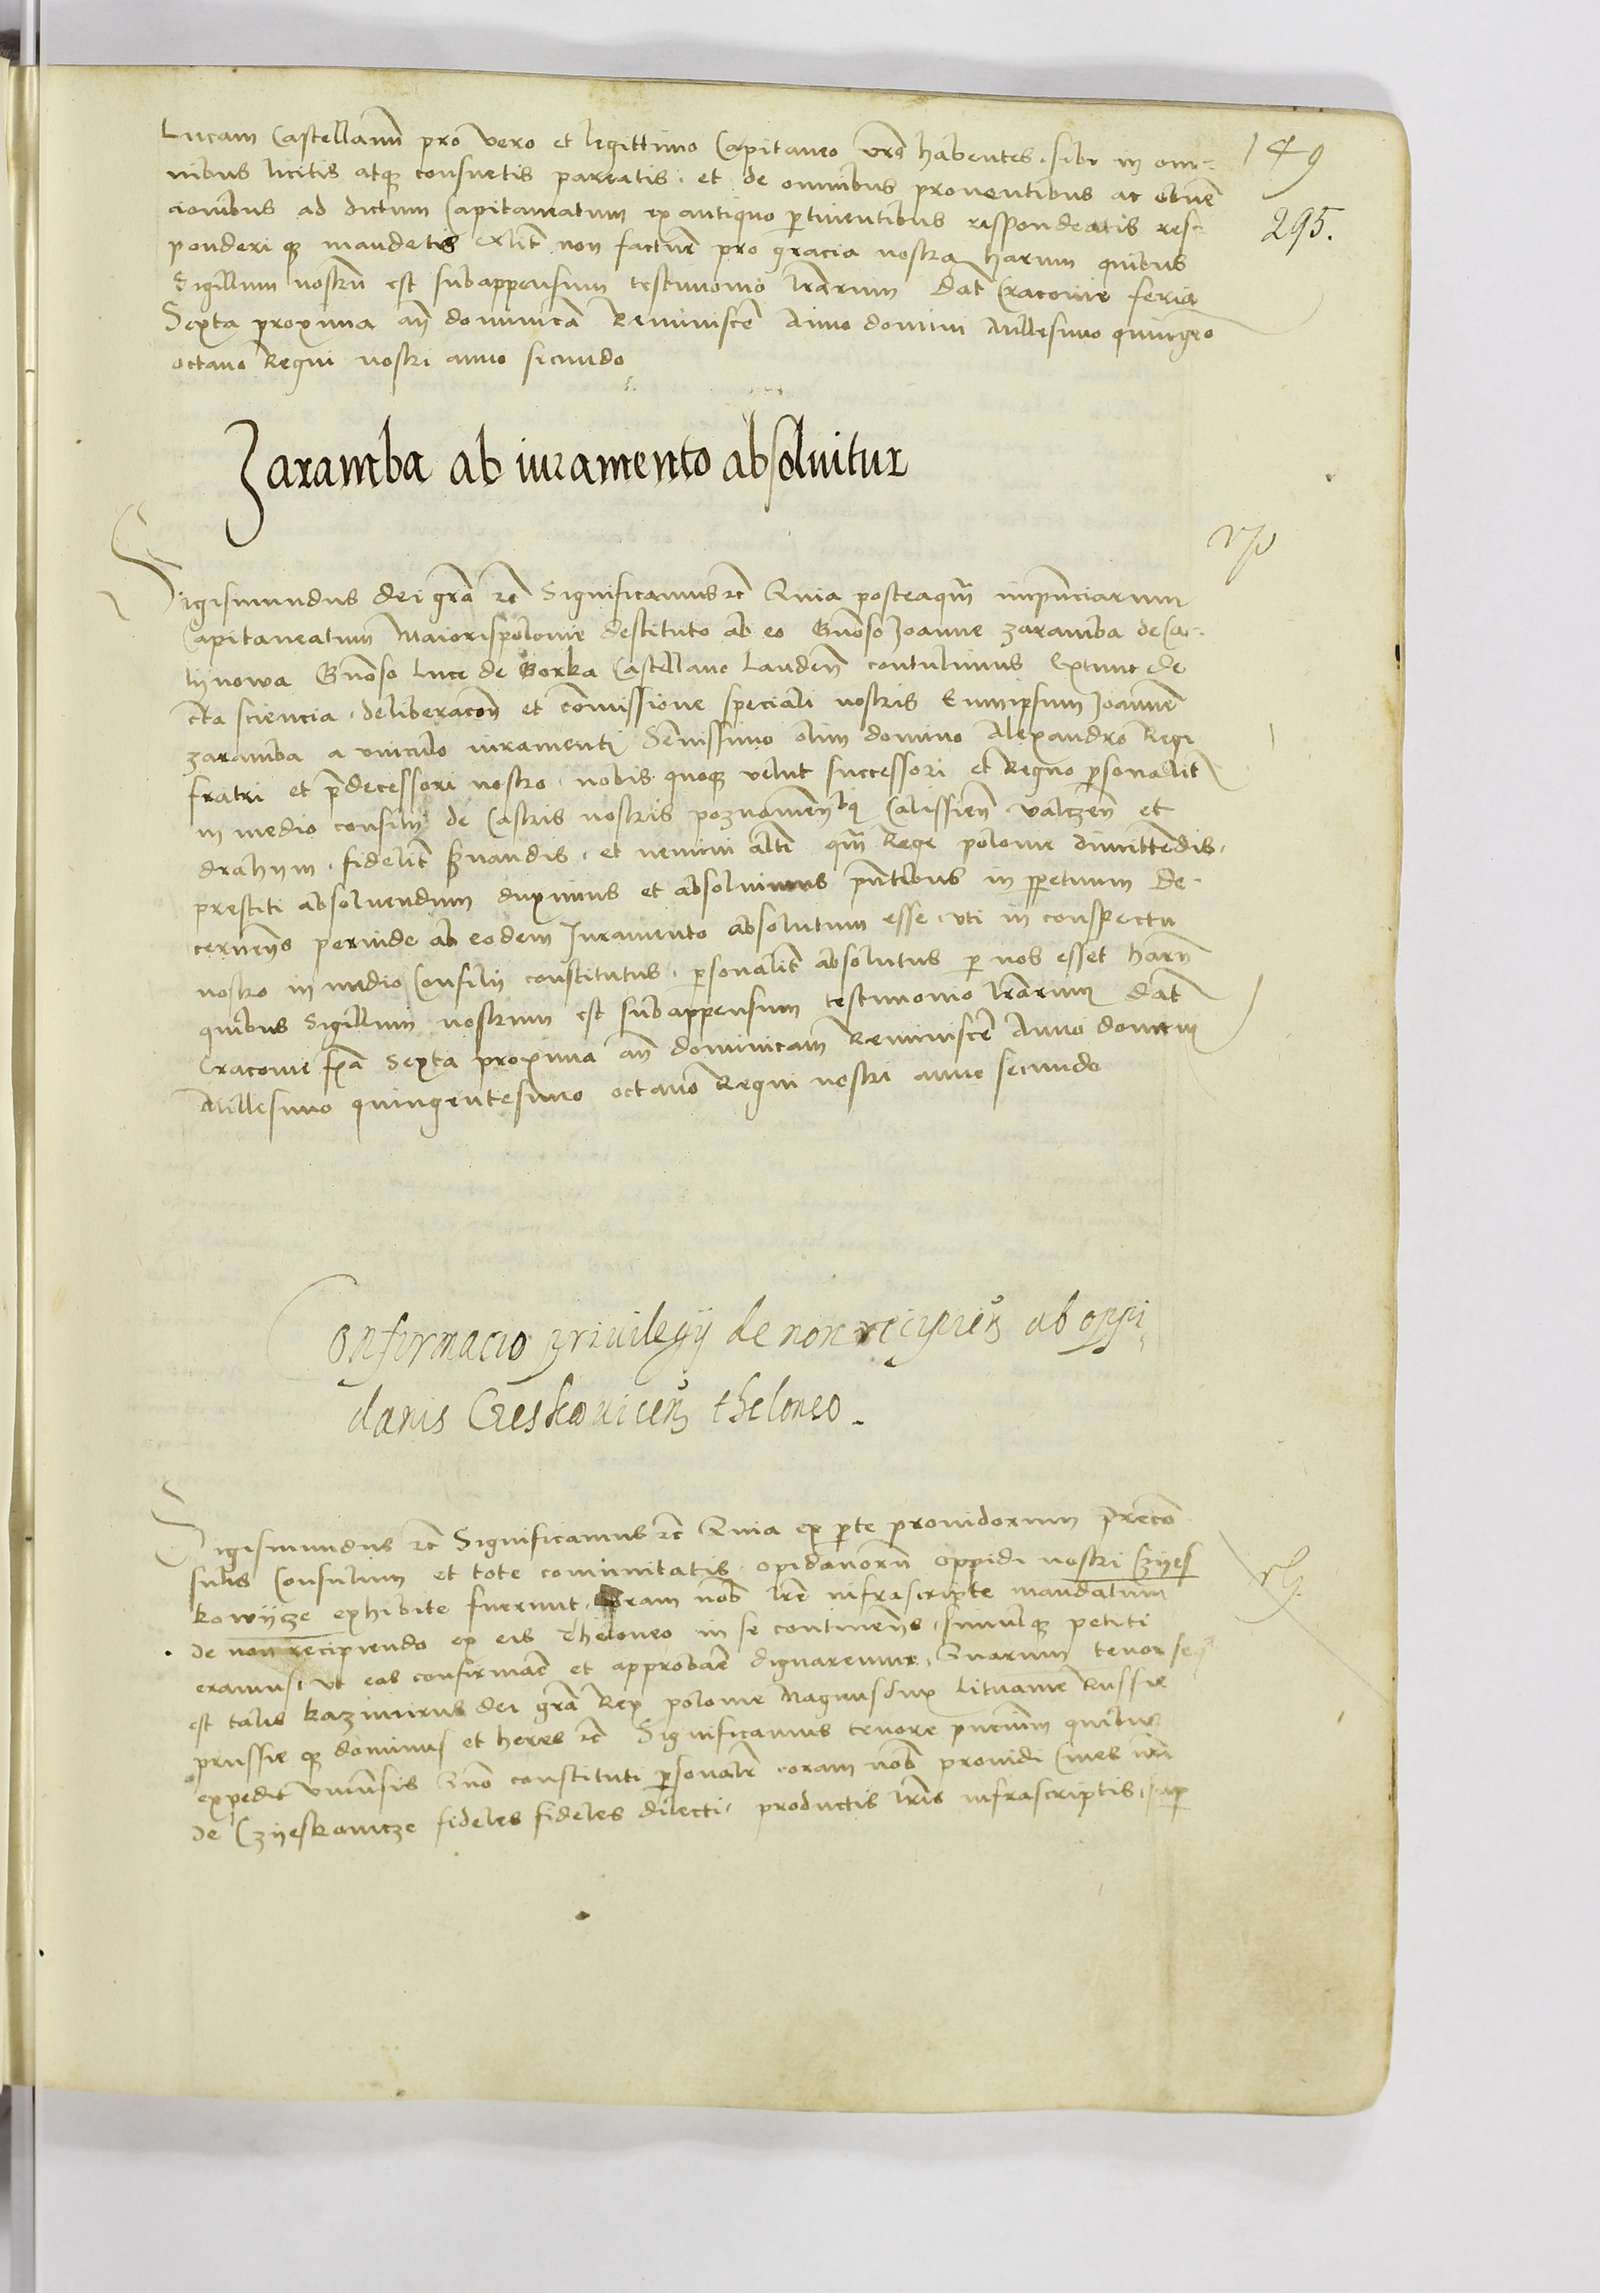 Lucam Castellanū pro vero et legittimo Capitaneo vrō habentes. sibi in om-
nibus licitis atqȝ consuetis pareatis. et de omnibus proventibus ac obuen
cionibus ad dictum Capitaneatum ex antiquo ptinentibus respondeatis res-
ponderi qȝ mandetis Alit non facturi pro gracia nostra harum quibus
Sigillum nostrū est subappensum testimonio lrarum Dat Cracovie feria
Sexta proxima an dominicā Reminiscē Anno domini Millesimo quingeo
octavo Regni nostri anno secundo
149
295.
Zaramba ab iuramento absolvitur
Sigismundus dei grā rc Significamus rc Quia posteaqm
Capitaneatum Maiorispolonie destituto ab eo Gnoso Joanne zaramba de Ca-
lÿnowa Gnoso Luce de Gorka Castellano Landen contulimus Extunc de
cta sciencia. deliberacon et cōmissione speciali nostris Eumipsum Joannē
zaramba a vinculo iuramenti Sernissimo olim domino Alexandro Regi
fratri et pdecessori nostro. nobis quoqȝ velut successori et Regno psonalit
in medio consilii de Castris nostris poznanien Calissien valczen et
drahym. fidelit svandis. et nemini alti qm Rege polonie dimittēdis.
prestiti absolvendum duximus et absolvimus pntibus in ppetuum De-
cernens perinde ab eodem Juramento absolutum esse uti in conspectu
nostro in medio Consilii constitutus. psonalit absolutus p nos esset harū
quibus Sigillum nostrum est subappensum testimonio lrarum Dat
Cracovie fia Sexta proxima an dominicam Reminiscē Anno domini
Millesimo quingentesimo octavo Regni nostri anno secundo
Confirmacio privilegÿ de non recipien ab oppi
danis Cieskovicen theloneo.
Sigismundus rc Significamus rc Quia ex pte providorum precō
sulis Consulum et tote comunitatis. opidanorū oppidi nostri Czÿes
kowÿcze exhibite fuerunt. coram nob lre infrascripte mandatum
de non recipiendo ex eis Theloneo in se continens. simulqȝ petiti
eramus. ut eas confirmare et approbare dignaremur. Quarum tenor
est talis Kazimirus dei grā Rex polonie Magnus dux lituanie Russie
prussie qȝ dominus et heres rc Significamus tenore pncium quibus
expedit univsis Quo constituti psonalit coram nob providi Cives nri
de Czÿeskovicze fideles fideles dilecti. productis lris infrascriptis. sup